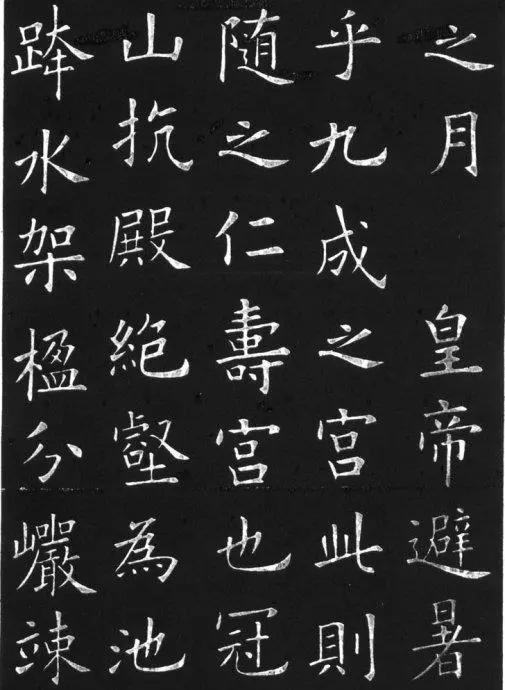 之月皇帝避暑
乎九成之宮此則
随之仁壽宮也冠
山抗殿絕壑為池
跨水架楹分巖竦